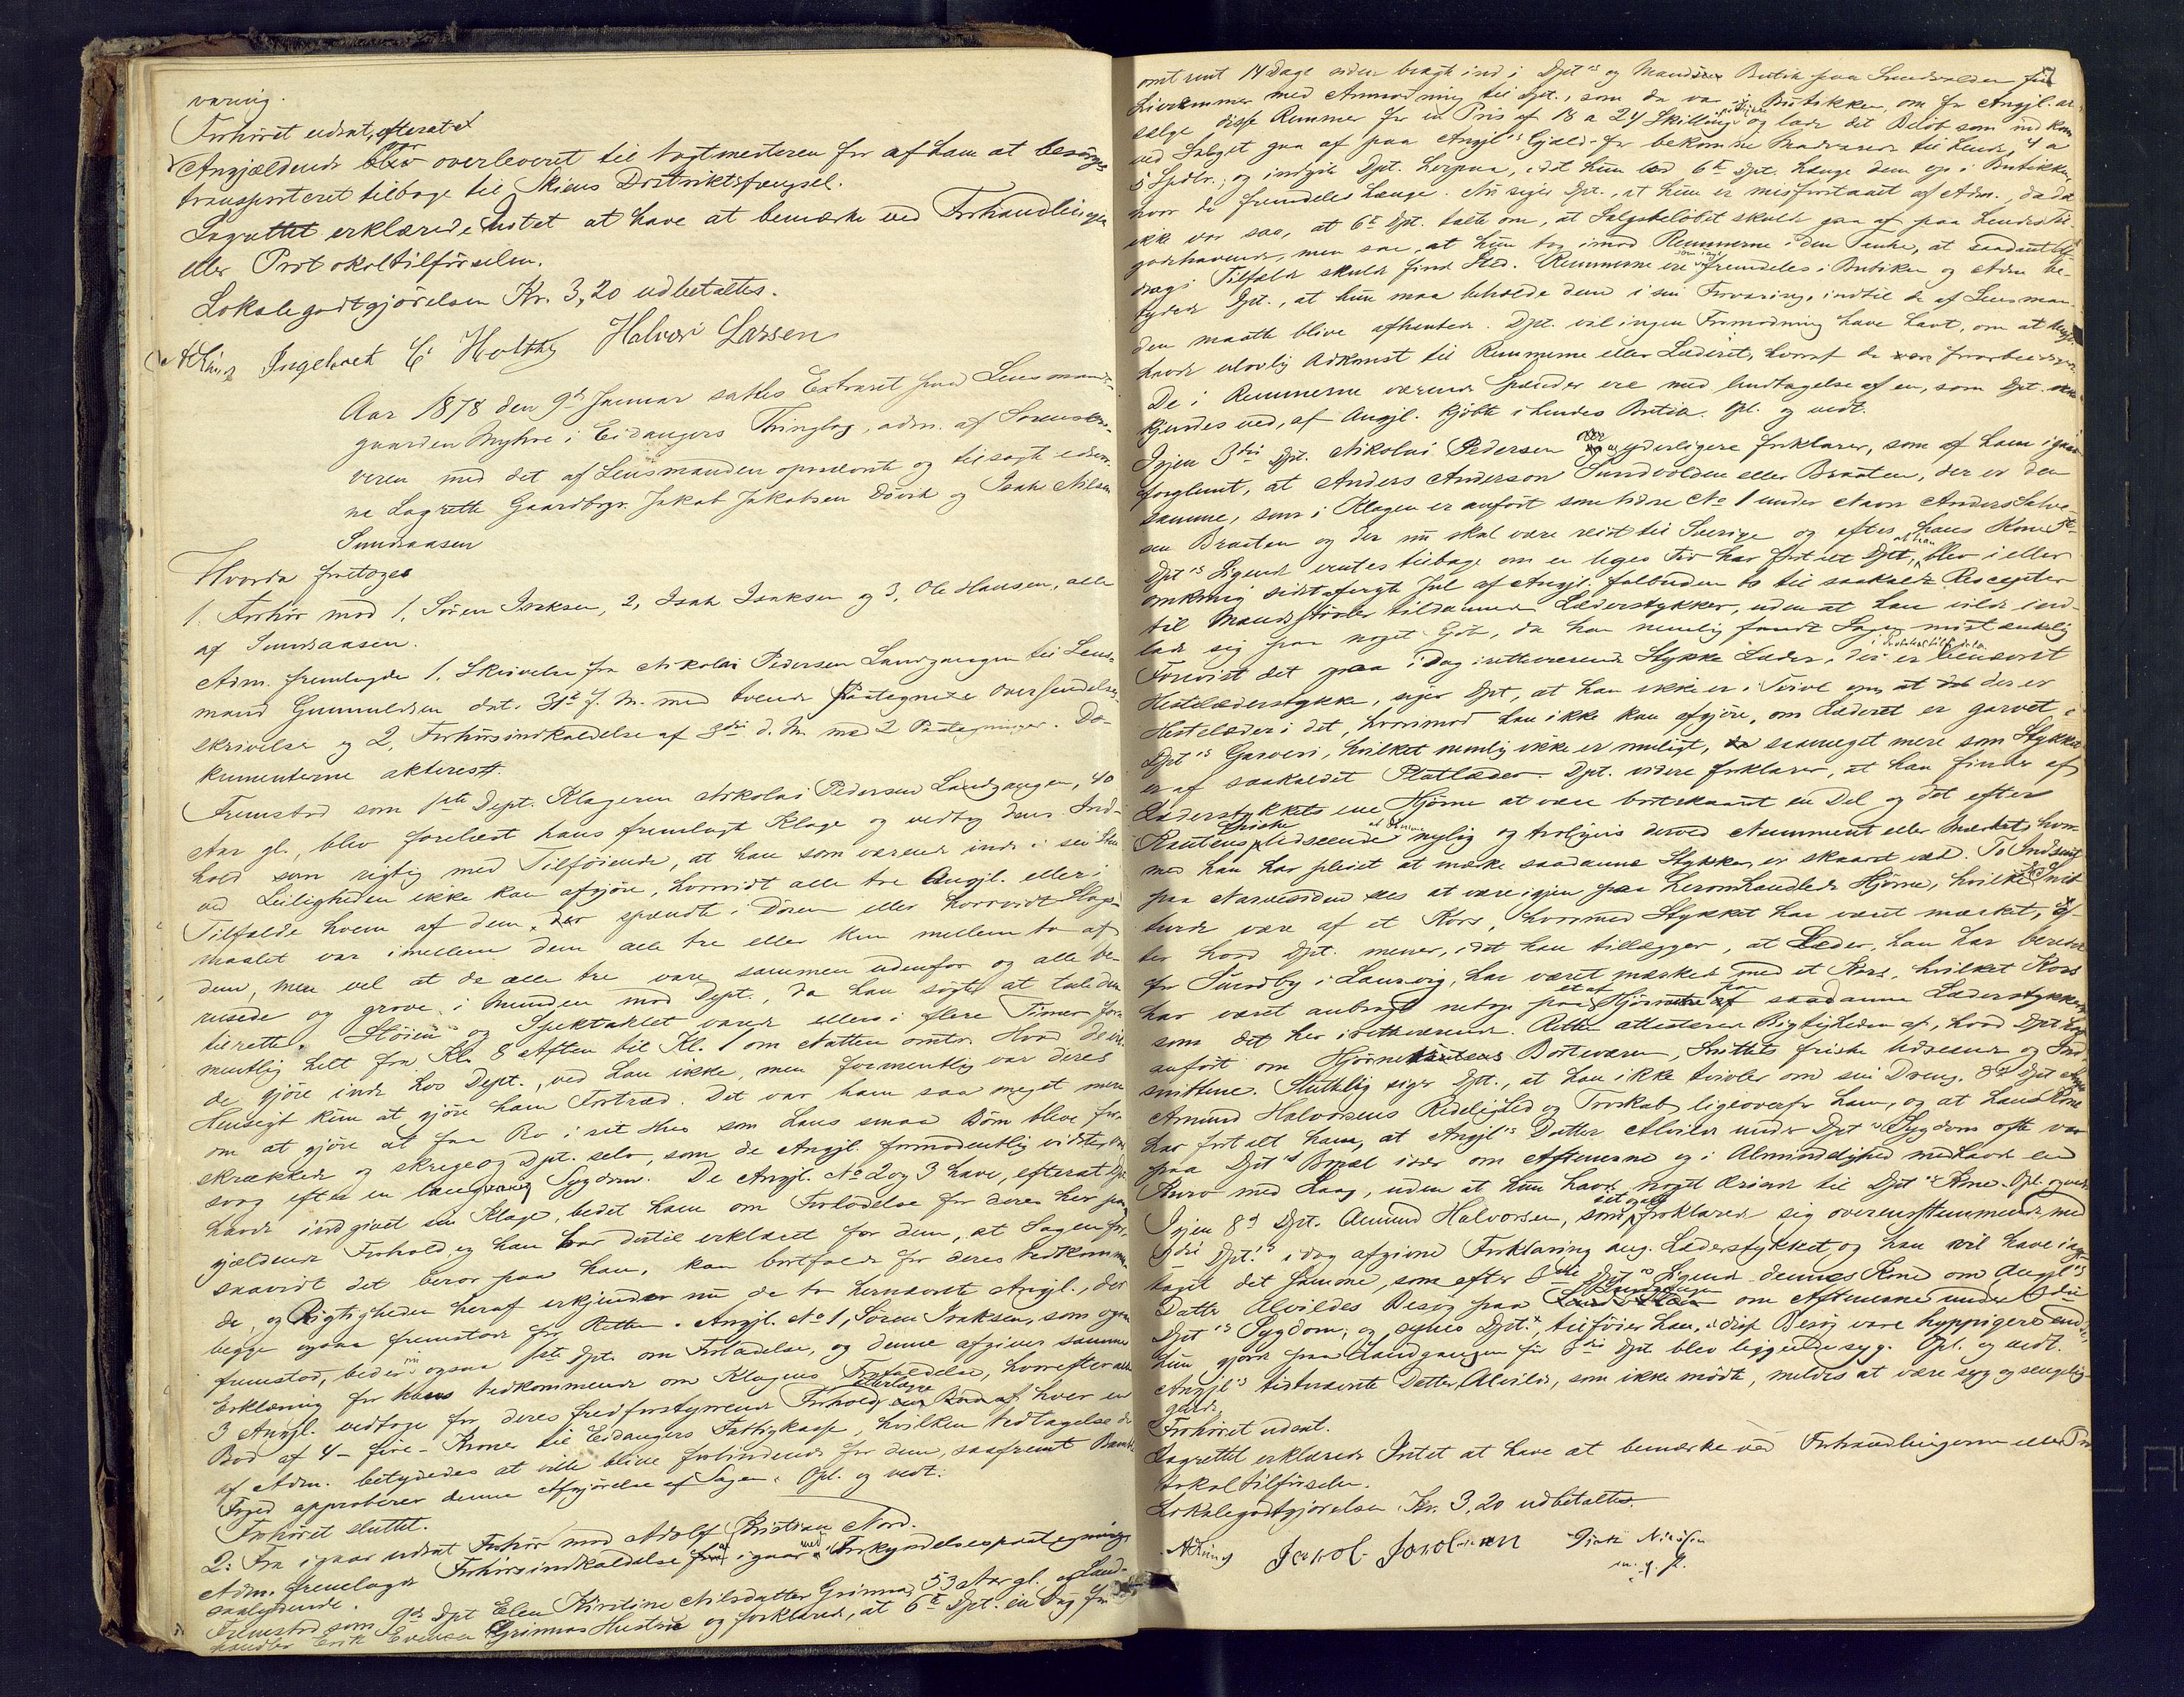 varing.
Forhøret udsat, efterat
Angjældende blev overleveret til Vagtmesteren for af ham at besørges
transporteret tilbage til Skiens Distriktsfængsel.
Lagrettet erklærede Intet at have at bemærke ved Forhandlingen
eller Protokoltilførselen.
Lokalegodtgjørelsen Kr. 3,20 udbetaltes.
Ingebret C. Holtby Halvor Larsen
Aar 1878 den 9de Januar sattes Extraret paa Lensmands-
gaarden Myhre i Eidangers Thinglag, adm. af Sorenskri-
veren med det af Lensmanden opnævnte og tilsagte edsvor-
ne Lagrette Gaardbrgr. Jakob Jakobsen Døvik og Isak Nilsen
Sundsaasen
Hvorda foretoges
1. Forhør mod 1, Søren Isaksen, 2, Isak Isaksen og 3, Ole Hansen, alle
af Sundsaasen.
Adm. fremlagde 1. Skrivelse fra Nikolai Pedersen Landgangen til Lens-
mand Gunnuldsen dat. 31te f. M. med tvende paategnede Oversendelses-
skrivelser og 2, Forhørsindkaldelse af 3die d. M. med 2 Paategninger. Do-
kumenterne akteres.
Fremstod som 1ste Dept. Klageren Nikolai Pedersen Landgangen, 40
Aar gl., blev forelæst hans fremlagte Klage og vedtog dens Ind-
hold som rigtig med Tilføiende, at han som værende inde i sin Stue
ved Leiligheden ikke kan afgjøre, hvorvidt alle tre Angjl. eller i
Tilfælde hvem af dem, der spændte i Døren eller hvorvidt Slags-
maalet var imellem dem alle tre eller kun mellem to af
dem, men vel at de alle tre vare sammen udenfor og alle be-
rusede og grove i Munden mod Dept., da han søgte at tale dem
tilrette. Støien og Spektaklet varede ellers i flere Timer for-
mentlig helt fra Kl. 8 Aften til Kl. 1 om Natten omtr. Hvad de vil-
de gjøre inde hos Dept., ved han ikke, men formentlig var deres
Hensigt kun at gjøre ham Fortræd. Det var ham saa meget mere
om at gjøre at faa Ro i sit Hus som hans smaa Børn bleve for-
skrækkede og skrege og Dpt. selv, som de Angjl. formodentlig vidste, var
svag efter en langvarig Sygdom. De Angjl. No 2 og 3 have, efterat Dpt.
havde indgivet sin Klage, bedet ham om Forladelse for deres her paa-
gjældende Forhold, og han har dertil erklæret for dem, at Sagen for-
saavidt det beror paa ham, kan bortfalde for deres Vedkommen-
de, og Rigtigheden heraf erkjender nu de to hernævnte Angjl., der
begge ogsaa fremstode for Retten. Angjl. No 1, Søren Isaksen, som ogsaa
fremstod, beder nu ogsaa 1ste Dpt. om Forladelse, og denne afgiver samme
Erklæring for hans Vedkommende om Klagens Frafaldelse, hvorefter alle
3 Angjl. vedtage for deres fredforstyrrende Forhold at erlægge hver en
Bod af 4 - fire - Kroner til Eidangers Fattigkasse, hvilken Vedtagelse de
af Adm. betydedes at ville blive forbindende for dem, saafremt Bamble
Foged approberer denne Afgjørelse af Sagen. Opl. og vedt.
Forhøret sluttet.
2: Fra igaar udsat Forhør mod Adolf Kristian Nord.
Adm. fremlagde Forhørsindkaldelse af igaar med Forkyndelsespaategning
saalydende.
Fremstod som 9de Dpt Elen Kirstine Nilsdatter Grinna, 53 Aar gl. og Land-
handler Erik Evensen Grinnas Hustru og forklarede, at 6te Dpt. en Dag for
omtrent 14 Dage siden bragte ind i Dpts og Mands Butik paa Sundvolden fire
Livremmer med Anmodning til Dpt., som da var i Butikken, om for Angjl. at
sælge disse Remmer for en Pris af 18 a 24 Skilling og lade det Beløb som indkom
ved Salget gaa af paa Angjls Gjæld for bekomme Madvarer til hende, 4 a
5 Spdlr., og indgik Dpt. herpaa, idet hun lod 6te Dpt. hænge dem op i Butikken,
hvor de fremdeles hænge. Nu siger Dpt., at hun er misforstaaet af Adm., da det
ikke var saa, at 6te Dpt. talte om, at Salgsbeløbet skulde gaa af paa hendes Til-
godehavende, men saa at hun tog imod Remmerne i den Tanke, at saadant Af-
drag i Tilfælde skulde finde Sted. Remmerne ere fremdeles i Butiken og Adm. be-
tydede Dpt., at hun maa beholde dem i sin Forvaring, indtil de af Lensman-
den maatte blive afhentede. Dpt. vil ingen Formodning have havt, om at Angjl.
havde ulovlig Adkomst til Remmerne eller Læderet, hvoraf de vare forarbeidede.
De i Remmerne værende Spænder ere med Undtagelse af en, som Dpt. ikke
kjendes ved, af Angjl. kjøbte i hendes Butik. Opl. og vedt.
Igjen 3die Dpt. Nikolai Pedersen der yderligere forklarer, som af ham igaar
forglemt, at Anders Anderson Sundvolden eller Braaten, der er den
samme, som i Klagen er anført som Vidne No 1 under Navn Anders Salve-
sen Braaten og der nu skal være reist til Sverige og efter hans Kones til
Dpts Sigende ventes tilbage om en Uges Tid har fortalt Dpt., at han blev i eller
omkring sidstafvigte Jul af Angjl. falbuden to til saakaldte Resecepter
til Mandsstøvler tildannede Læderstykker, uden at han vilde ind-
lade sig paa noget Kjøb, da han nemlig fandt Sagen mistænkelig
Forevist det igaa i Dag iretteværende Stykke Læder, der er benævnt
Hestelæderstykke, siger Dpt, at han ikke er i Tvivl om at der er
Hestelæder i det, hvorimod han ikke kan afgjøre, om Læderet er garvet i
Dpts Garveri, hvilket nemlig ikke er muligt, saameget mere som Stykket
er af saakaldet Platlæder. Dpt. videre forklarer, at han finder af
Læderstykkets ene Hjørne at være bortskaaret en Del og det efter
Kantens friske Udseende nylig og troligvis derved Nummeret eller Mærket, hvor-
med han har pleiet at mærke saadanne Stykker, er skaaret væk. To Indsnit
paa Narvesiden sees at være igjen paa heromhandlede Hjørne, hvilke Snit
turde være af et Kors, hvormed Stykket har været mærket, ef-
ter hvad Dpt. mener, idet han tillægger, at Læder, han har beredet
for Sundby i Laurvig, har været mærket med et Kors, hvilket Kors
har været anbragt netop paa et af Hjørnerne paa saadanne Læderstykker
som det her iretteværende. Retten attesterede Rigtigheden af, hvad Dpt har
anført om Hjørnets Bortværen, Snittets friske Udseende og Ind-
snittene. Sluttelig siger Dpt., at han ikke tvivler om sin Dreng, 8de Dpt
Amund Halvorsens Redelighed og Troskab ligeoverfor ham, og at hans Kone
har fortalt ham, at Angjls Datter Alvilde under Dpts Sygdom ofte var
paa Dpts Bopæl idet om Aftenerne og i Almindelighed medhavde en
Kurv med Laag, uden at hun havde noget Ærinde til Dpts Kone. Opl. og vedt.
Igjen 8de Dpt. Amund Halvorsen, som forklarede sig overensstemmende med
3die Dpts i dag afgivne Forklaring ang. Læderstykket, og han vil have iagt-
taget det samme, som efter 3die Dpts Sigende dennes Kone om Angjls
Datter Alvildes Besøg paa Landgangen om Aftenerne under 3die
Dpts Sygdom; og synes Dpt., tilføier han, disse Besøg vare hyppigere end
hun gjorde paa Landgangen før 3die Dpt blev liggende syg. Opl. og vedt.
Angjls sidstnævnte Datter, Alvilde, som ikke mødte, meldes at være syg og sengelig-
gende
Forhøret udsat.
Lagrettet erklærede Intet at have at bemærke ved Forhandlingerne eller Pro-
tokoltilførselen.
Lokalegodtgjørelsen Kr. 3,20 udbetaltes.
Jacob Jacobsen Isak Nielsen
m. p. P.